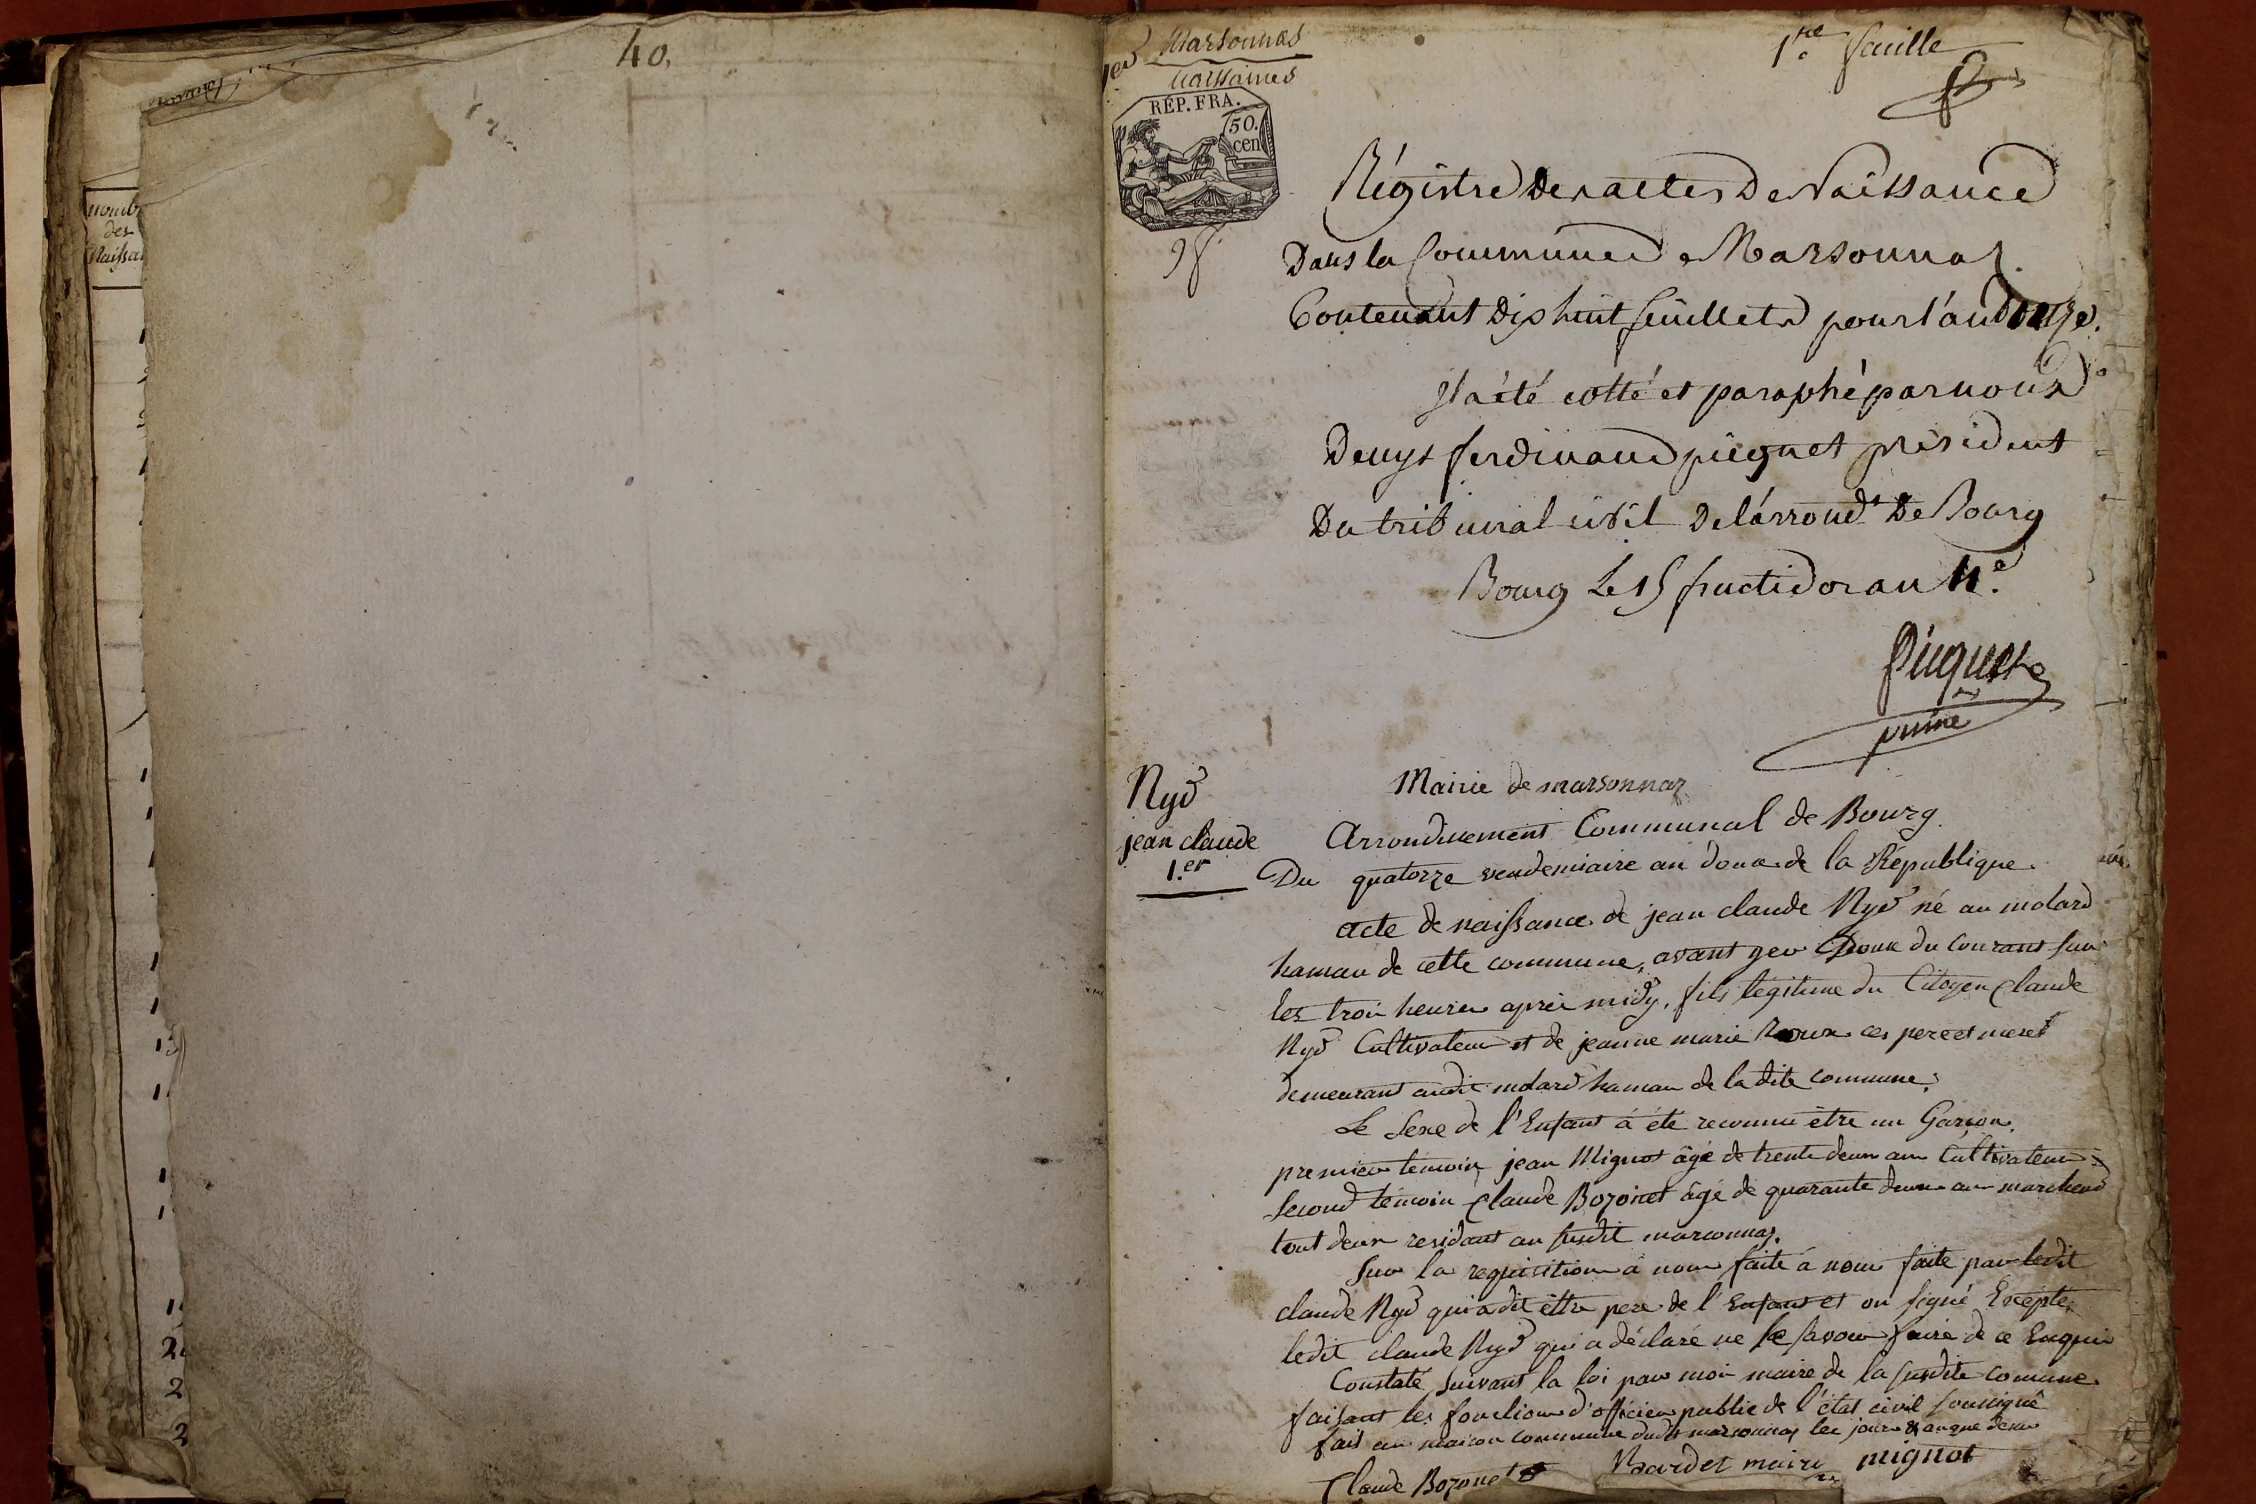 40.
nomb
des
Naissa
1er Marsonnas
naissances
1re feuille
RÉP. FRA.
50.
cen
Régistre des actes de Naissance
Dans la Commune de Marsonnas.
Contenant dix huit feuillets pour l'an douze.
Il a été cotté et paraphé par nous
Denys ferdinand piquet président
Du tribunal civil de l'arrond.t de Bourg
Bourg le 15 fructidor an 11e.
Piquet
Nyd
jean claude
1.er
Mairie de marsonnas
Arrondissement Communal de Bourg.
Du quatorze vendemiaire an douze de la République
acte de naissance de jean claude Nyd né au molard
hamau de cette commune, avant yer Douze du Courant sur
les trois heures après midy, fils légitime du Citoyen Claude
Nyd Cultivateur et de jeanne marie Roux ces pere et mere
demeurant audit molard hamau de la dite commune.
Le sexe de l'Enfant à été reconnu être un Garçon.
premier temoin jean Mignot âgé de trente deux ans Cultivateur
second témoin Claude Bozonet âgé de quarante deux ans marchend
tout deux residant au susdit marconnas.
Sur la requisition à nous faite à nous faite par ledit
claude Nyd qui a dit être pere de l'Enfant et on signé Excepté
ledit claude Nyd qui a déclaré ne le savoir faire de ce Enquis
Constaté suivant la loi par moi maire de la susdite Comune
faisant les fonctions d'officier public de l'état civil soussigné
fait en maison commune dudit marsonnas les jour & an que deux
Claude Bozonet maire mignot